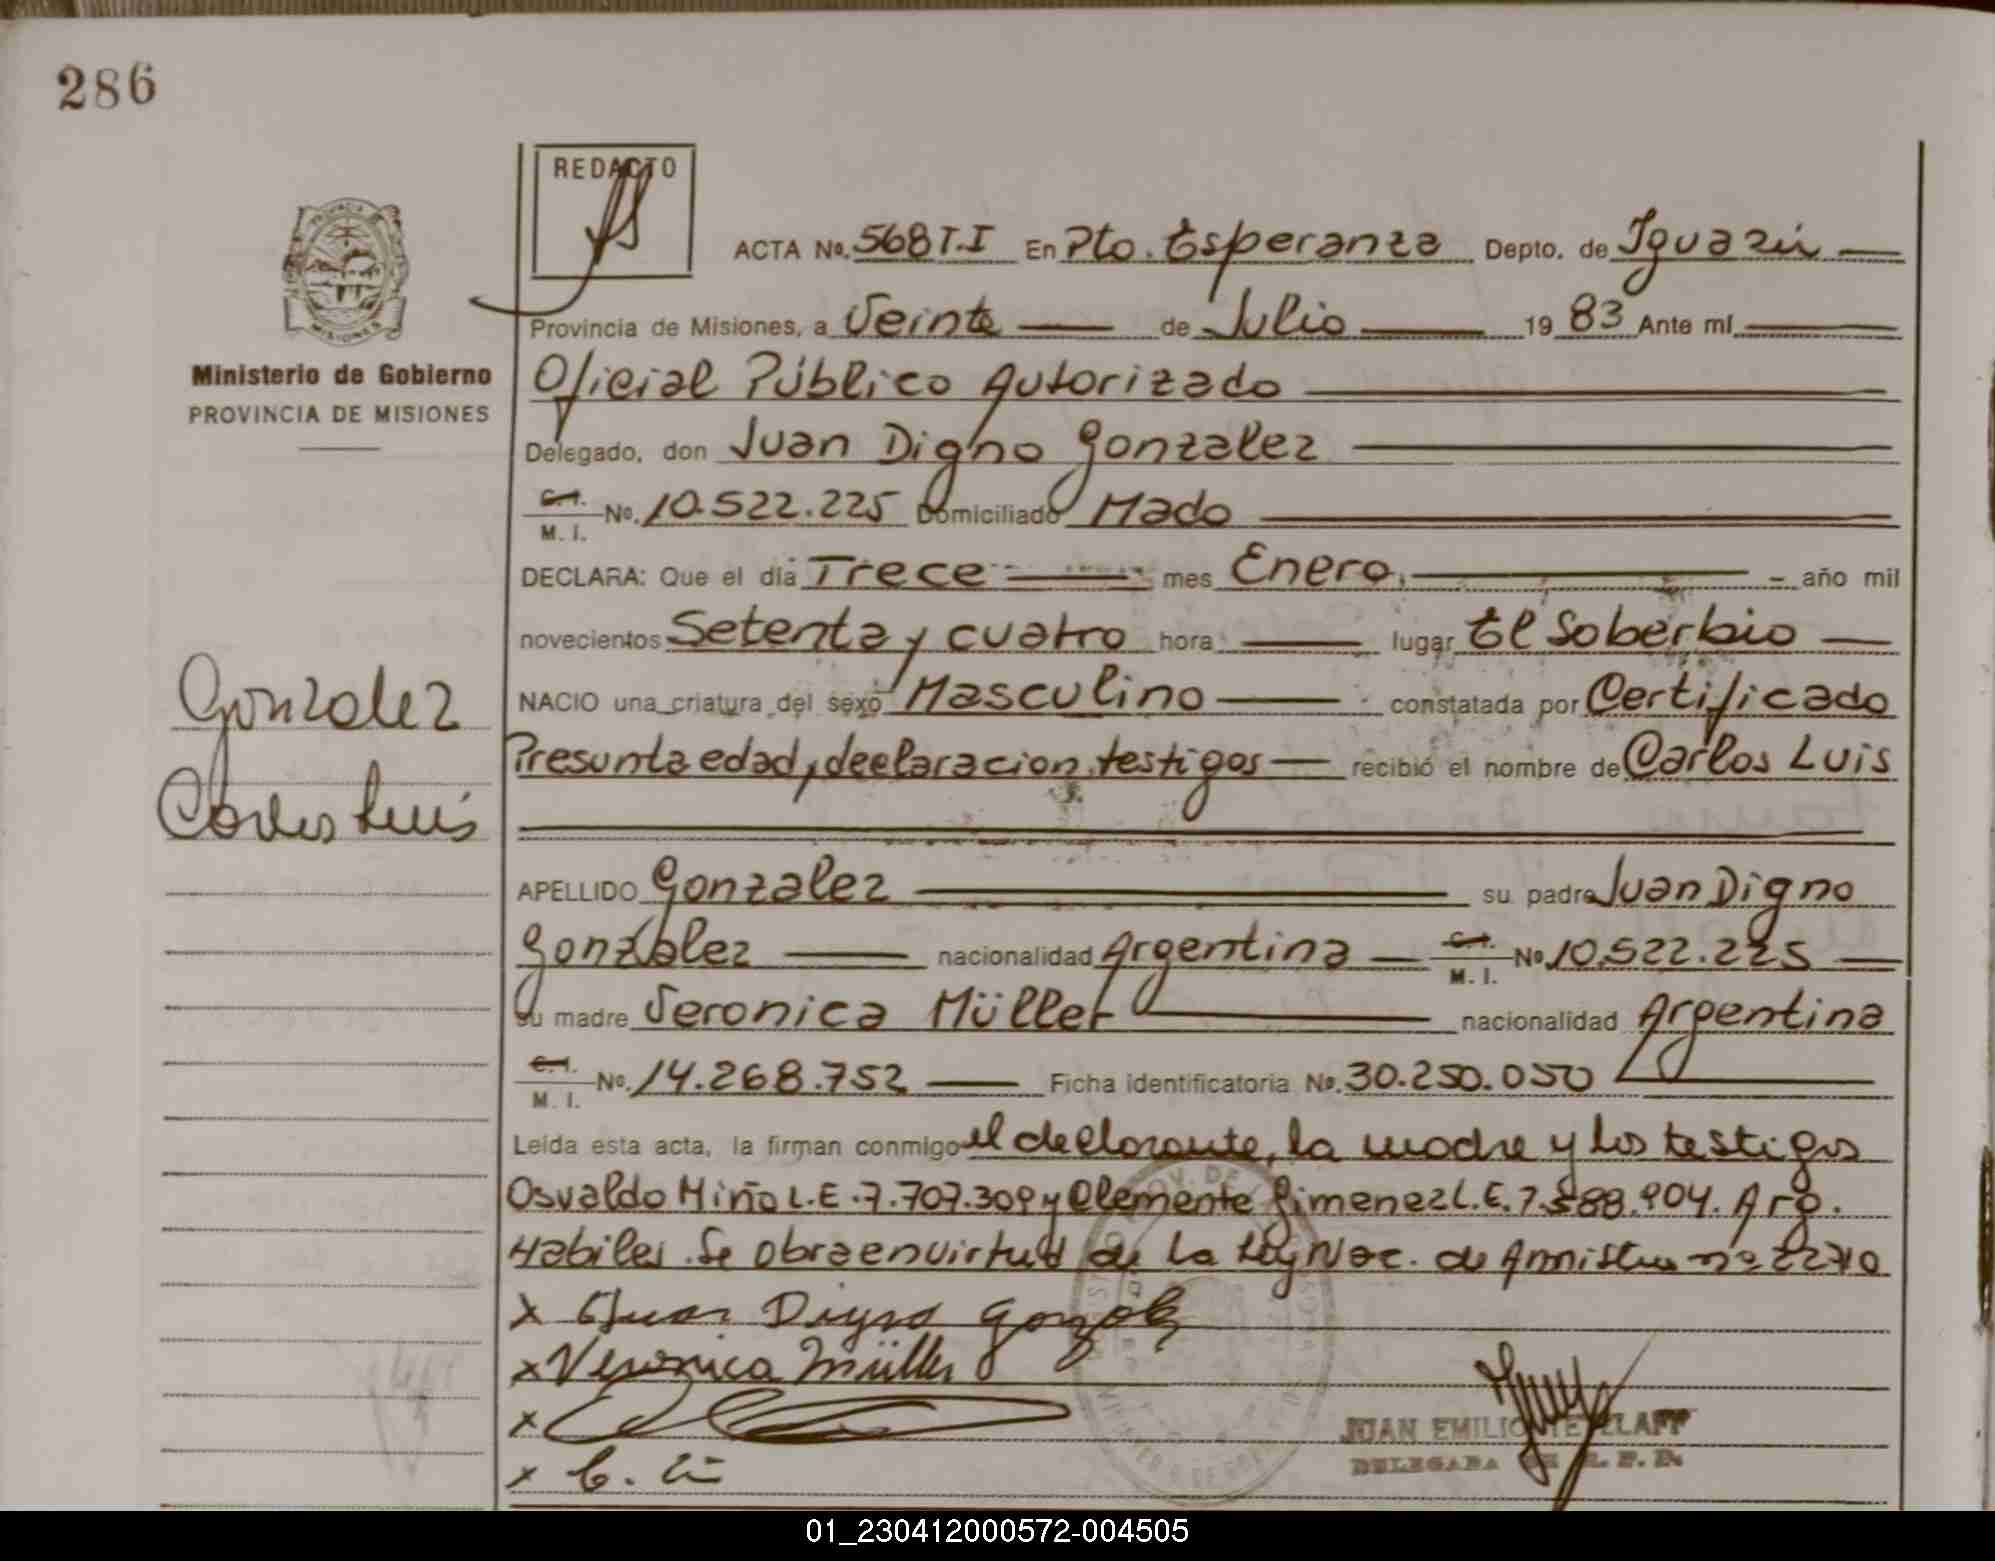 286
REDACTO
ACTA No. 568 T.I En Pto. Esperanza Depto. de Iguazú
PROVINCIA DE
MISIONES
Provincia de Misiones, a Veinte de Julio 19 83 Ante mí
Ministerio de Gobierno
PROVINCIA DE MISIONES
Oficial Público Autorizado
Delegado, don Juan Digno Gonzalez
C.I. M. I. No. 10.522.225 Domiciliado Mado
DECLARA: Que el día Trece mes Enero. año mil
novecientos Setenta y cuatro hora lugar El Soberbio
NACIO una criatura del sexo Masculino constatada por Certificado
Presunta edad, declaracion testigos recibió el nombre de Carlos Luis
Gonzalez
Carlos Luis
APELLIDO Gonzalez su padre Juan Digno
Gonzalez nacionalidad Argentina C.I. M. I. No 10.522.225
su madre Veronica Müller nacionalidad Argentina
C.I. M. I. No. 14.268.752 Ficha identificatoria No. 30.250.050
Leída esta acta, la firman conmigo el declarante, la madre y los testigos
Osvaldo Miño L.E.7.707.309 y Clemente Gimenez L.E.7.588.904. Arg.
Habiles. Se obra en virtud de la Ley Nac. de Amnistia nº
x Juan Digno Gonzalez
x Veronica Müller
x
x
JUAN EMILIO
DELEGADA
01_230412000572-004505